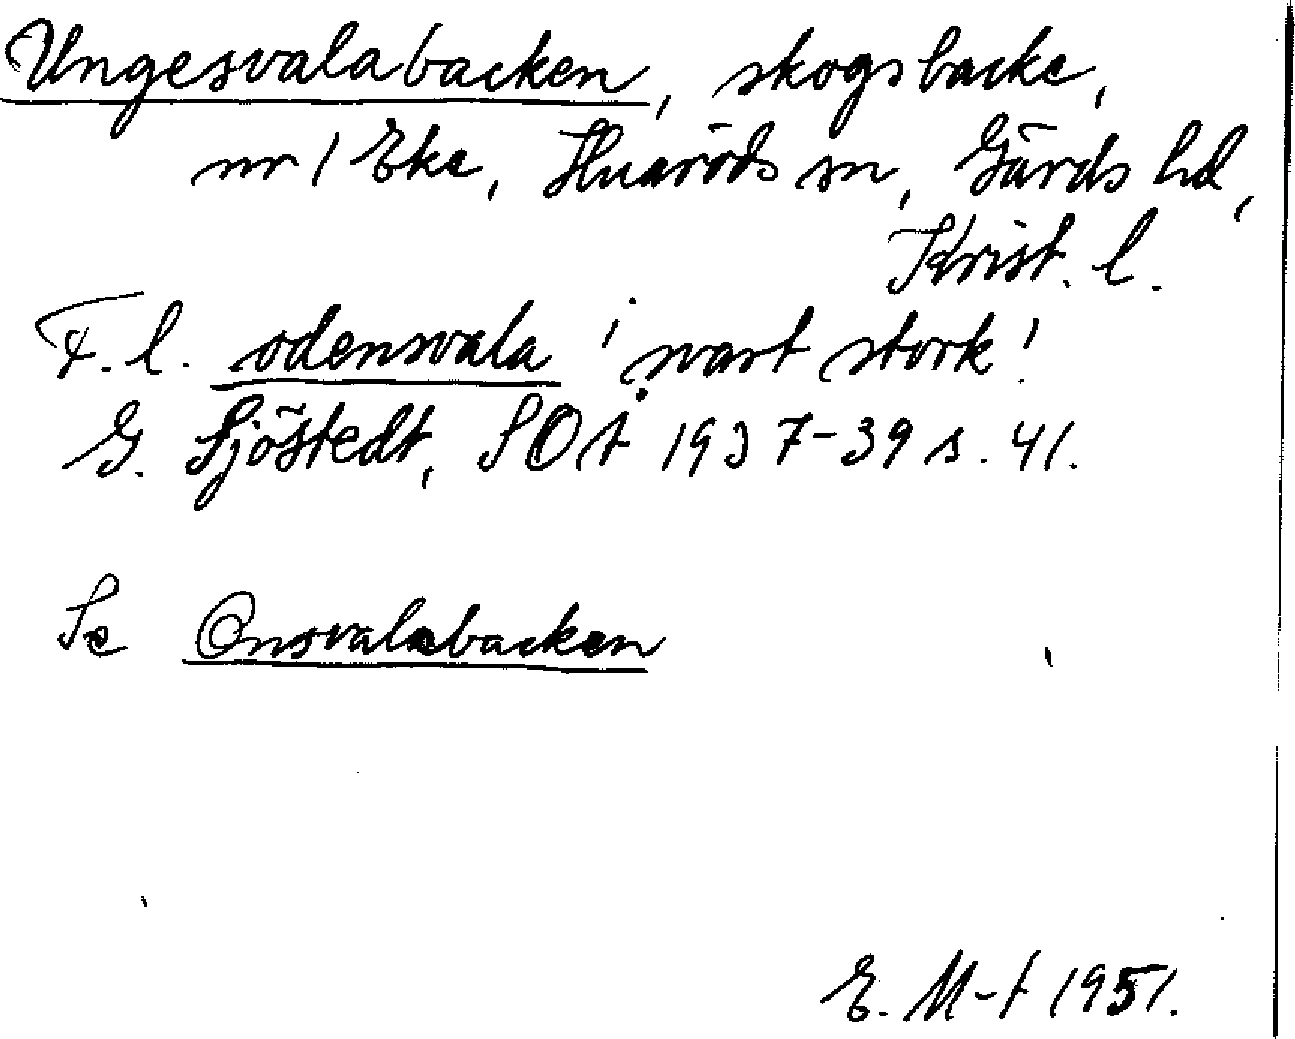 Ungesvalabacken, skogsbacke,
nr 1 Eke, Huaröds sn, Gärds hd,
Krist. l.
F. l. odensvala 'svart stork'
G. Sjöstedt, SOÅ 1937-39 s. 41.
Se Onsvalabacken
E. M-t 1951.